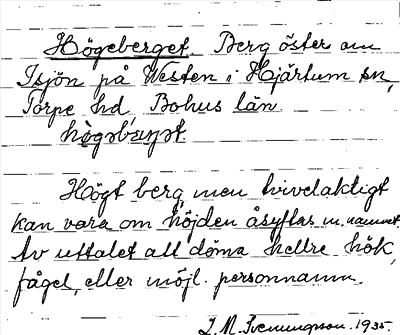 Högeberget. Berg öster om
Isjön på Westen i Hjärtum sn,
Torpe hd, Bohus län.
Högt berg, men tvivelaktigt
kan vara om höjden åsyftas m. namnet.
Av uttalet att döma hellre hök,
fågel, eller möjl. personnamn.
1935.